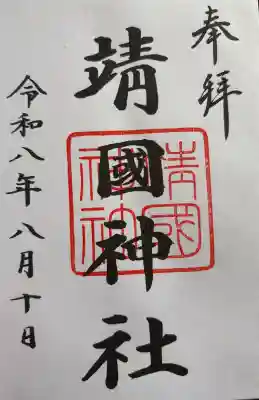 奉拝
靖國神社
靖國神社
令和八年八月十日